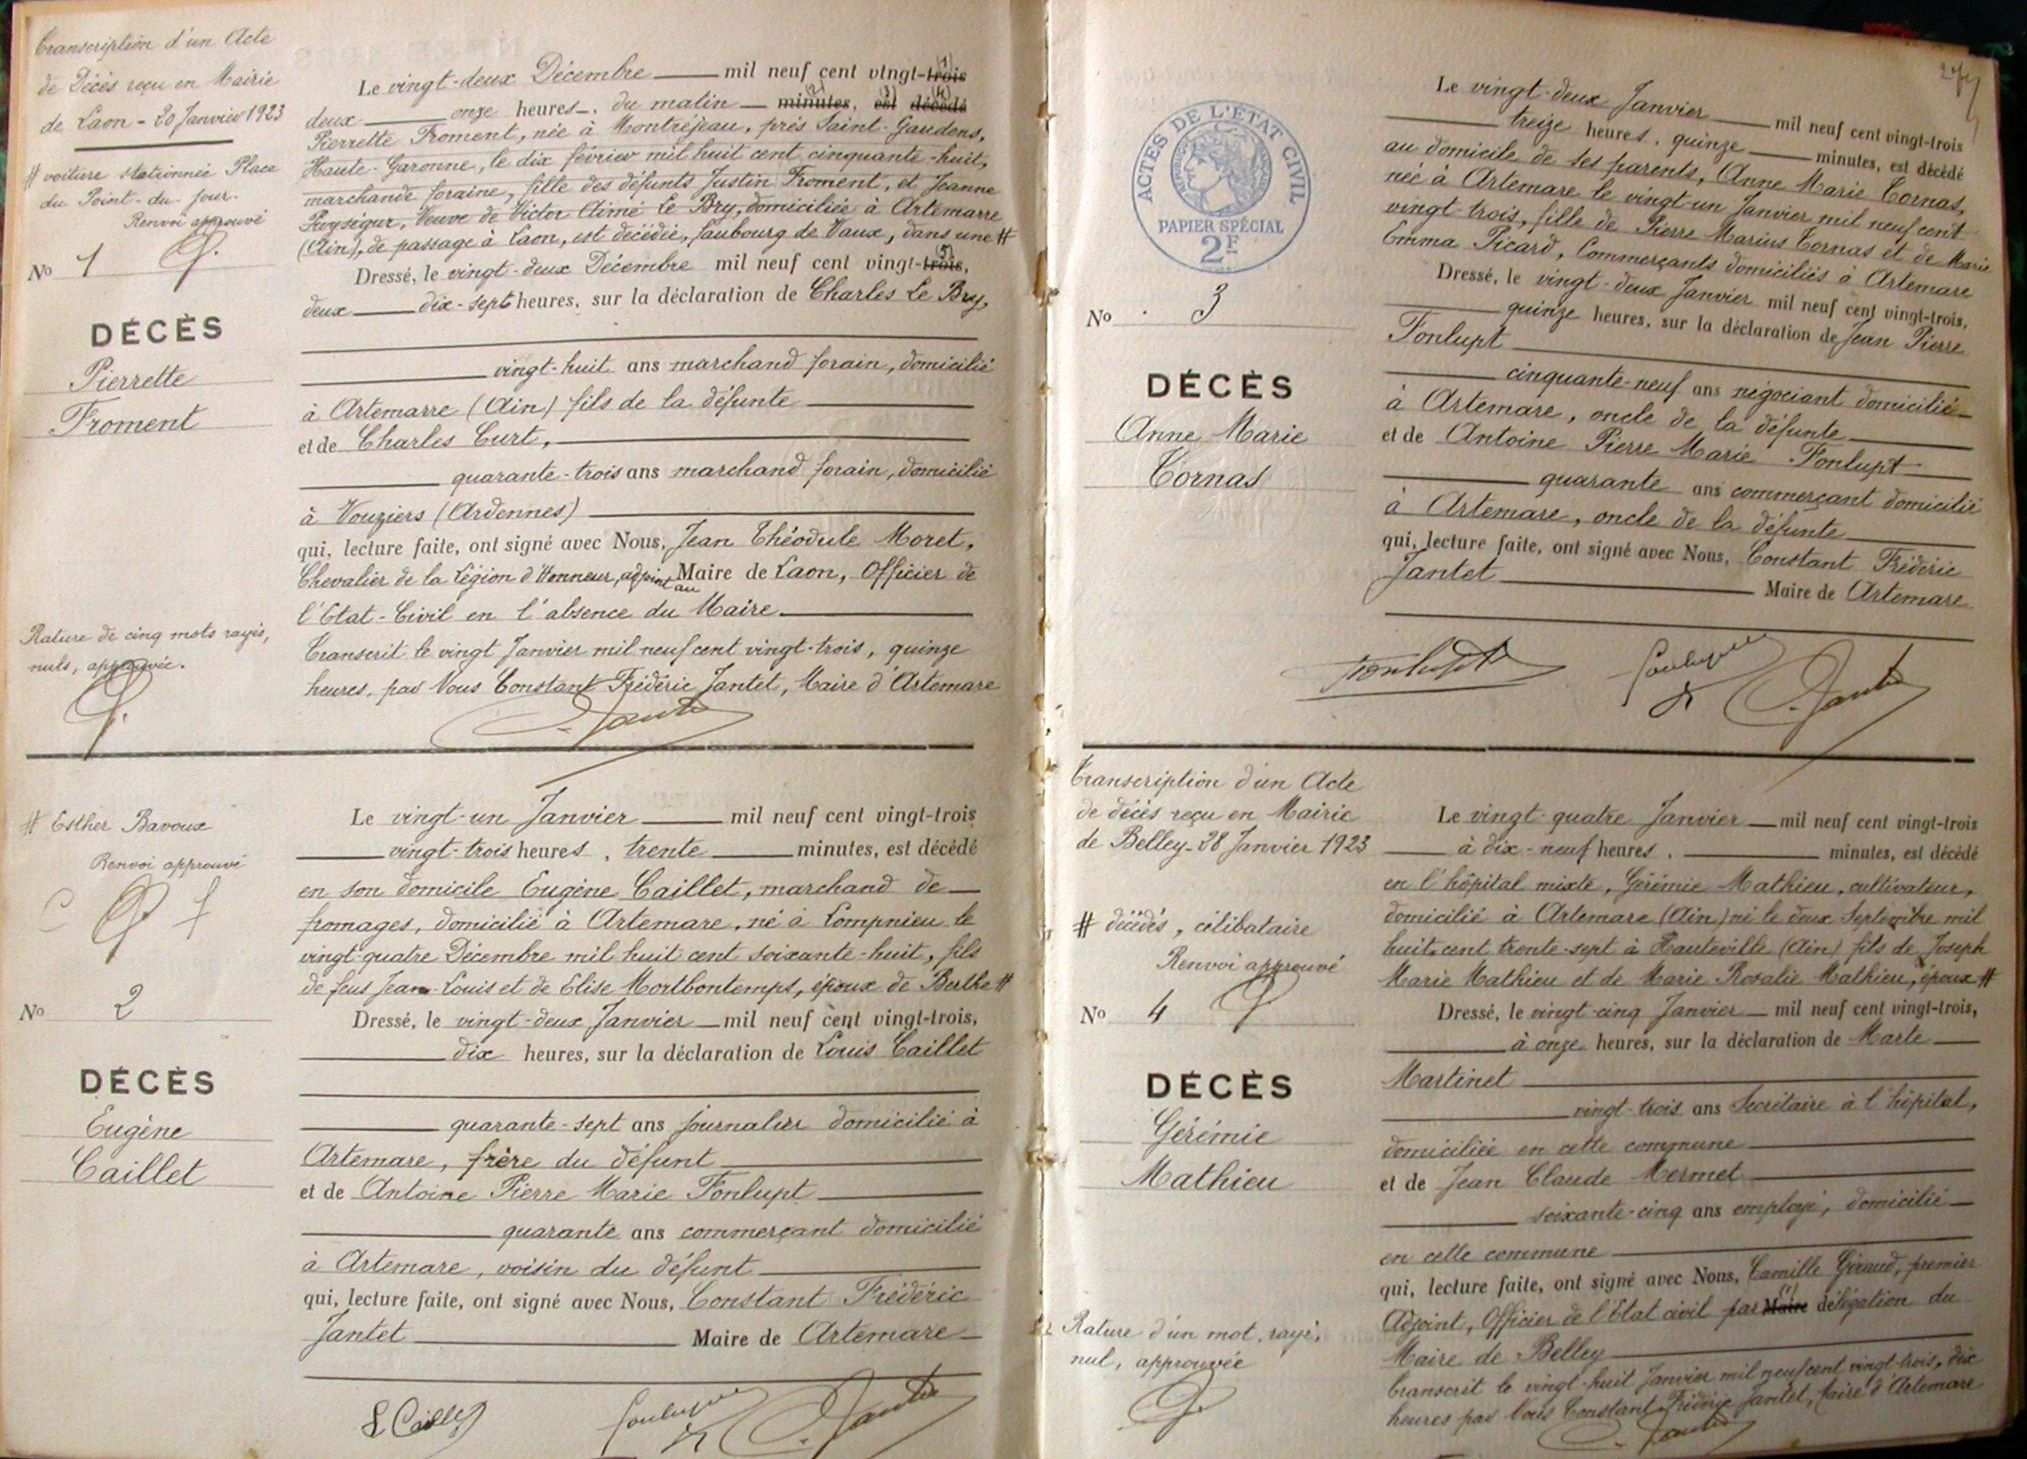 Transcription d'un Acte
de Décès reçu en Mairie
de Laon - 20 Janvier 1923
# voiture stationnée Place
du Point-du-jour.
Renvoi approuvé
No 1
DÉCÈS
Pierrette
Froment
Rature de cinq mots rayés,
nuls, approuvée.
Le vingt-deux Décembre mil neuf cent vingt-trois (1)
deux onze heures, du matin minutes, (2) est (3) décédé (4)
Pierrette Froment, née à Montréjeau, près Saint-Gaudens,
Haute-Garonne, le dix février mil huit cent cinquante-huit,
marchande foraine, fille des défunts Justin Froment, et Jeanne
Puységur, Veuve de Victor Aimé Le Bry, domiciliée à Artemarre
(Ain), de passage à Laon, est décédée, faubourg de Vaux, dans une #
Dressé, le vingt-deux Décembre mil neuf cent vingt-trois, (5)
deux dix-sept heures, sur la déclaration de Charles Le Bry,
vingt-huit ans marchand forain, domicilié
à Artemarre (Ain) fils de la défunte
et de Charles Curt,
quarante-trois ans marchand forain, domicilié
à Vouziers (Ardennes)
qui, lecture faite, ont signé avec Nous, Jean Théodule Moret,
Chevalier de la Légion d'Honneur, adjoint au Maire de Laon, Officier de
l'Etat-Civil en l'absence du Maire
Transcrit le vingt Janvier mil neuf cent vingt-trois, quinze
heures, par Nous Constant Frédéric Jantet, Maire d'Artemare
C. Jantet
# Esther Bavoux
Renvoi approuvé
No 2
DÉCÈS
Eugène
Caillet
Le vingt-un Janvier mil neuf cent vingt-trois
vingt-trois heures, trente minutes, est décédé
en son domicile Eugène Caillet, marchand de
fromages, domicilié à Artemare, né à Lompnieu le
vingt-quatre Décembre mil huit cent soixante-huit, fils
de feus Jean-Louis et de Elise Mortbontemps, époux de Berthe #
Dressé, le vingt-deux Janvier mil neuf cent vingt-trois,
dix heures, sur la déclaration de Louis Caillet
quarante-sept ans journalier domicilié à
Artemare, frère du défunt
et de Antoine Pierre Marie Fonlupt
quarante ans commerçant domicilié
à Artemare, voisin du défunt
qui, lecture faite, ont signé avec Nous, Constant Frédéric
Jantet Maire de Artemare
L Caillet
Fonlupt
C. Jantet
ACTES DE L'ÉTAT CIVIL
PAPIER SPÉCIAL
2F
No 3
DÉCÈS
Anne Marie
Cornas
Le vingt-deux Janvier mil neuf cent vingt-trois
treize heures, quinze minutes, est décédé
au domicile de ses parents, Anne Marie Cornas,
née à Artemare le vingt-un Janvier mil neuf cent
vingt trois, fille de Pierre Marius Cornas et de Marie
Emma Picard, Commerçants domiciliés à Artemare
Dressé, le vingt-deux Janvier mil neuf cent vingt-trois,
quinze heures, sur la déclaration de Jean Pierre
Fonlupt
cinquante-neuf ans négociant domicilié
à Artemare, oncle de la défunte
et de Antoine Pierre Marie Fonlupt
quarante ans commerçant domicilié
à Artemare, oncle de la défunte
qui, lecture faite, ont signé avec Nous, Constant Frédéric
Jantet Maire de Artemare
Fonlupt
Fonlupt
C. Jantet
Transcription d'un Acte
de décès reçu en Mairie
de Belley - 28 Janvier 1923
# décédés, célibataire
Renvoi approuvé
No 4
DÉCÈS
Gérémie
Mathieu
Rature d'un mot, rayé,
nul, approuvée
Le vingt-quatre Janvier mil neuf cent vingt-trois
à dix-neuf heures, minutes, est décédé
en l'hôpital mixte, Gérémie Mathieu, cultivateur,
domicilié à Artemare (Ain) né le deux Septembre mil
huit cent trente-sept à Hauteville (Ain) fils de Joseph
Marie Mathieu et de Marie Rosalie Mathieu, époux #
Dressé, le vingt-cinq Janvier mil neuf cent vingt-trois,
à onze heures, sur la déclaration de Marte
Martinet
vingt-trois ans Secrétaire à l'hôpital,
domiciliée en cette commune
et de Jean Claude Mermet
soixante-cinq ans employé, domicilié
en cette commune
qui, lecture faite, ont signé avec Nous, Camille Giraud, premier
Adjoint, Officier de l'Etat civil par Maire délégation du
Maire de Belley
Transcrit le vingt-huit Janvier mil neuf cent vingt-trois, dix
heures par Nous Constant Frédéric Jantet, Maire d'Artemare
C. Jantet